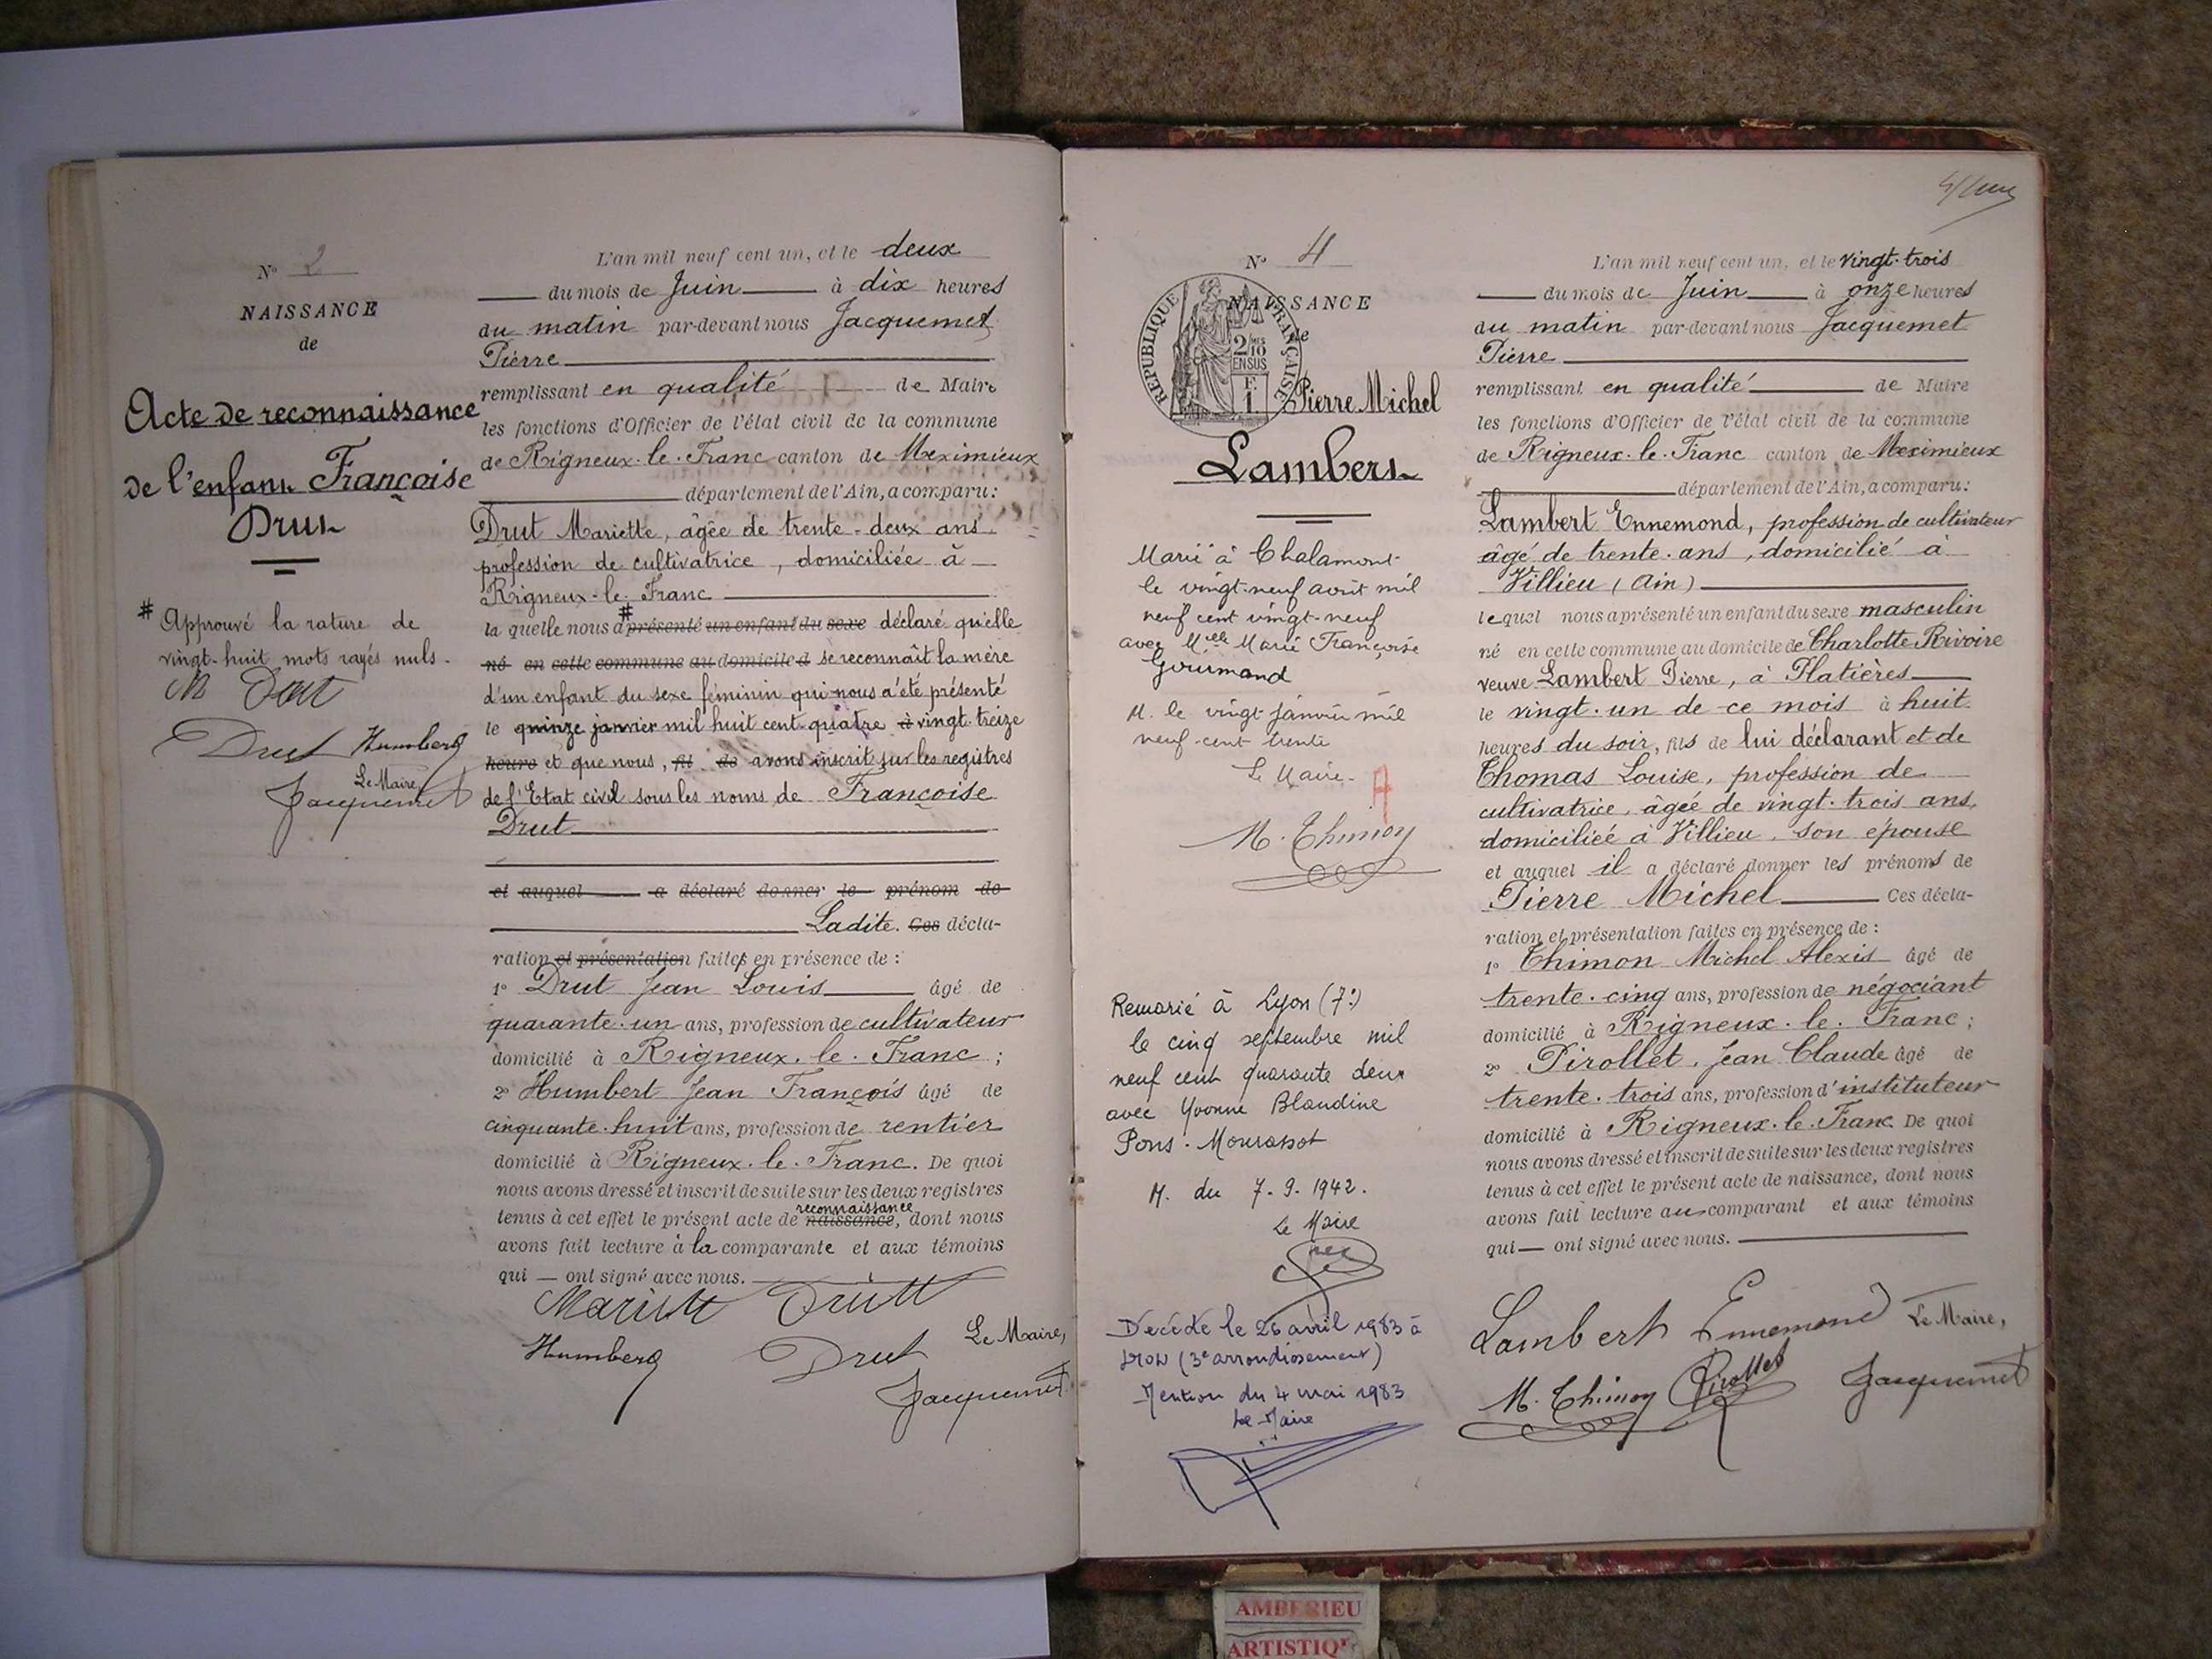 N° 2
NAISSANCE
de
Acte de reconnaissance
de l'enfant Françoise
Drut
# Approuvé la rature de
vingt-huit mots rayés nuls.
Drut Humbert
Le Maire,
Jacquemet
L'an mil neuf cent un, et le deux
du mois de Juin à dix heures
du matin par-devant nous Jacquemet
Pierre
remplissant en qualité de Maire
les fonctions d'Officier de l'état civil de la commune
de Rigneux-le-Franc canton de Meximieux
département de l'Ain, a comparu:
Drut Mariette, âgée de trente-deux ans
profession de cultivatrice, domiciliée à
Rigneux-le-Franc
la quelle nous a # présenté un enfant du sexe déclaré qu'elle
né en cette commune au domicile d se reconnaît la mère
d'un enfant du sexe féminin qui nous a été présenté
le quinze janvier mil huit cent quatre à vingt treize
heure et que nous, fil de avons inscrit sur les registres
de l'Etat civil sous les noms de Françoise
Drut
et auquel a déclaré donner le prénom de
Ladite. Ces décla-
ration et présentation faites en présence de :
1° Drut Jean Louis âgé de
quarante-un ans, profession de cultivateur
domicilié à Rigneux-le-Franc ;
2° Humbert Jean François âgé de
cinquante-huit ans, profession de rentier
domicilié à Rigneux-le-Franc. De quoi
nous avons dressé et inscrit de suite sur les deux registres
reconnaissance
tenus à cet effet le présent acte de naissance, dont nous
avons fait lecture à la comparante et aux témoins
qui — ont signé avec nous.
Mariette Drutt
Humbert Drut Le Maire,
Jacquemet
N° 4
NAISSANCE
de
REPUBLIQUE FRANÇAISE
2/10
EN SUS
F.
1.
Pierre Michel
Lambert
Marié à Chalamont
le vingt-neuf août mil
neuf cent vingt-neuf
avec Melle Marie Françoise
Gourmand
M. le vingt janvier mil
neuf-cent trente
Le Maire
A
M. Thimon
Remarié à Lyon (7e)
le cinq septembre mil
neuf cent quarante deux
avec Yvonne Blandine
Pons-Mourassot
M. du 7.9.1942.
Le Maire
Décédé le 26 avril 1983 à
LYON (3e arrondissement)
Mention du 4 mai 1983
Le Maire
L'an mil neuf cent un, et le vingt-trois
du mois de Juin à onze heures
du matin par-devant nous Jacquemet
Pierre
remplissant en qualité de Maire
les fonctions d'Officier de l'état civil de la commune
de Rigneux-le-Franc canton de Meximieux
département de l'Ain, a comparu:
Lambert Ennemond, profession de cultivateur
âgé de trente-ans, domicilié à
Villieu (Ain)
lequel nous a présenté un enfant du sexe masculin
né en cette commune au domicile de Charlotte Rivoire
veuve Lambert Pierre, à Platières
le vingt-un de ce mois à huit
heures du soir, fils de lui déclarant et de
Thomas Louise, profession de
cultivatrice, âgée de vingt-trois ans,
domiciliée à Villieu, son épouse
et auquel il a déclaré donner les prénoms de
Pierre Michel Ces décla-
ration et présentation faites en présence de :
1° Thimon Michel Alexis âgé de
trente-cinq ans, profession de négociant
domicilié à Rigneux-le-Franc ;
2° Pirollet, Jean Claude âgé de
trente-trois ans, profession d'instituteur
domicilié à Rigneux-le-Franc De quoi
nous avons dressé et inscrit de suite sur les deux registres
tenus à cet effet le présent acte de naissance, dont nous
avons fait lecture au comparant et aux témoins
qui — ont signé avec nous.
Lambert Ennemond Le Maire,
M. Thimon Pirollet Jacquemet
AMBERIEU
ARTISTIQ